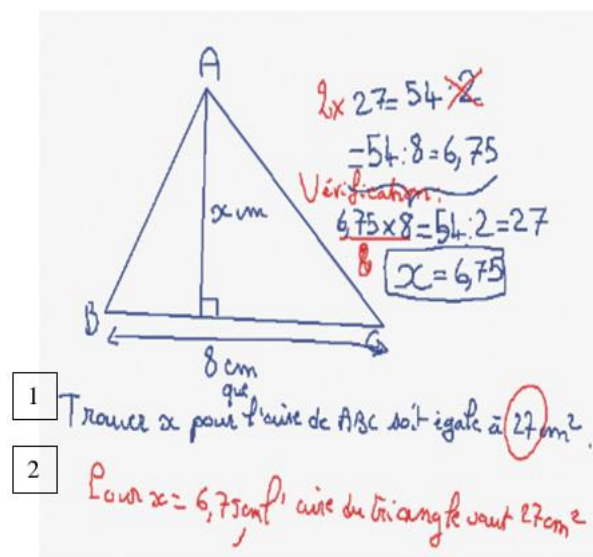 A
2x 27 = 54 : 2
= 54 : 8 = 6,75
Vérification.
x cm
6,75 x 8 = 54 : 2 = 27
8
x = 6,75
B
C
8 cm
1
que
Trouver x pour l'aire de ABC soit égale à 27 cm².
2
Pour x = 6,75 cm l'aire du triangle vaut 27 cm²